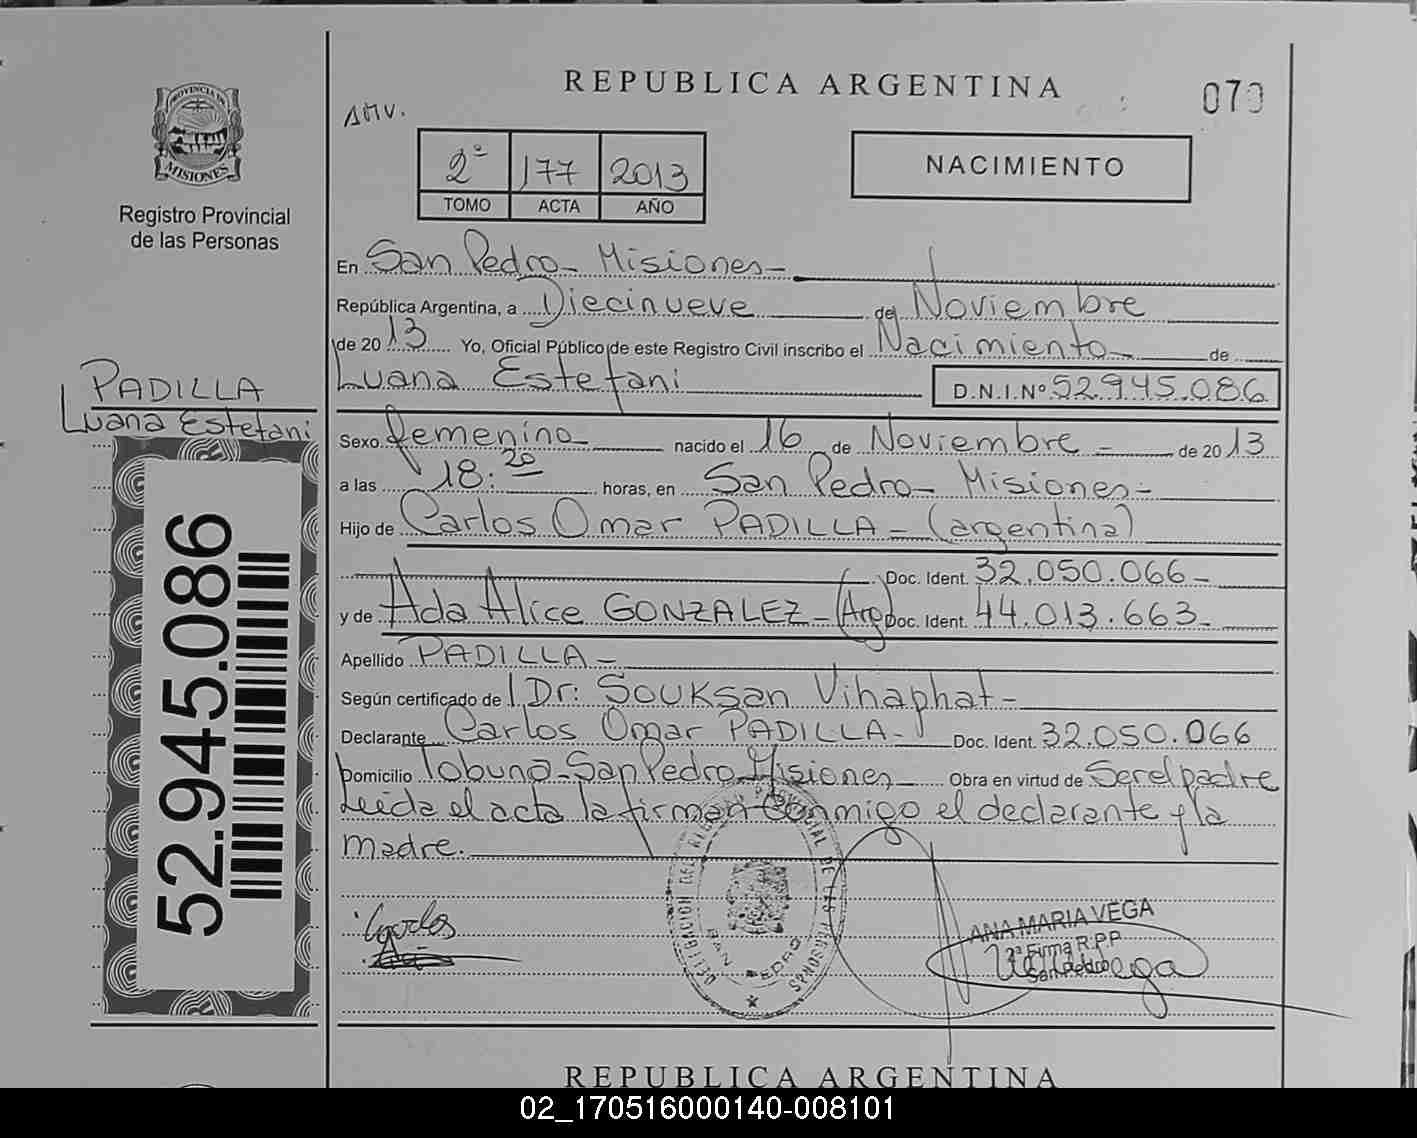 REPUBLICA ARGENTINA
PROVINCIA DE
MISIONES
Registro Provincial
de las Personas
2º 177 2013
TOMO ACTA AÑO
NACIMIENTO
En San Pedro - Misiones -
República Argentina, a Diecinueve del Noviembre
de 2013 Yo, Oficial Público de este Registro Civil inscribo el Nacimiento de
Luana Estefani D.N.I.Nº 52.945.086
PADILLA
Luana Estefani
Sexo femenino nacido el 16 de Noviembre - de 2013
a las 18:20 horas, en San Pedro - Misiones -
Hijo de Carlos Omar PADILLA - (argentina)
Doc. Ident. 32.050.066 -
y de Ada Alice GONZALEZ - (Arg) Doc. Ident. 44.013.663 -
Apellido PADILLA -
Según certificado de Dr: Souksan Vihaphat -
Declarante Carlos Omar PADILLA - Doc. Ident. 32.050.066
Domicilio Tobuna - San Pedro Misiones Obra en virtud de Ser el padre
Leida el acta la firman conmigo el declarante y la
madre.
52.945.086
DELEGACION DEL REGISTRO PROVINCIAL DE LAS PERSONAS
SAN PEDRO
ANA MARIA VEGA
2ª Firma R.P.P
San Pedro
REPUBLICA ARGENTINA
02_170516000140-008101